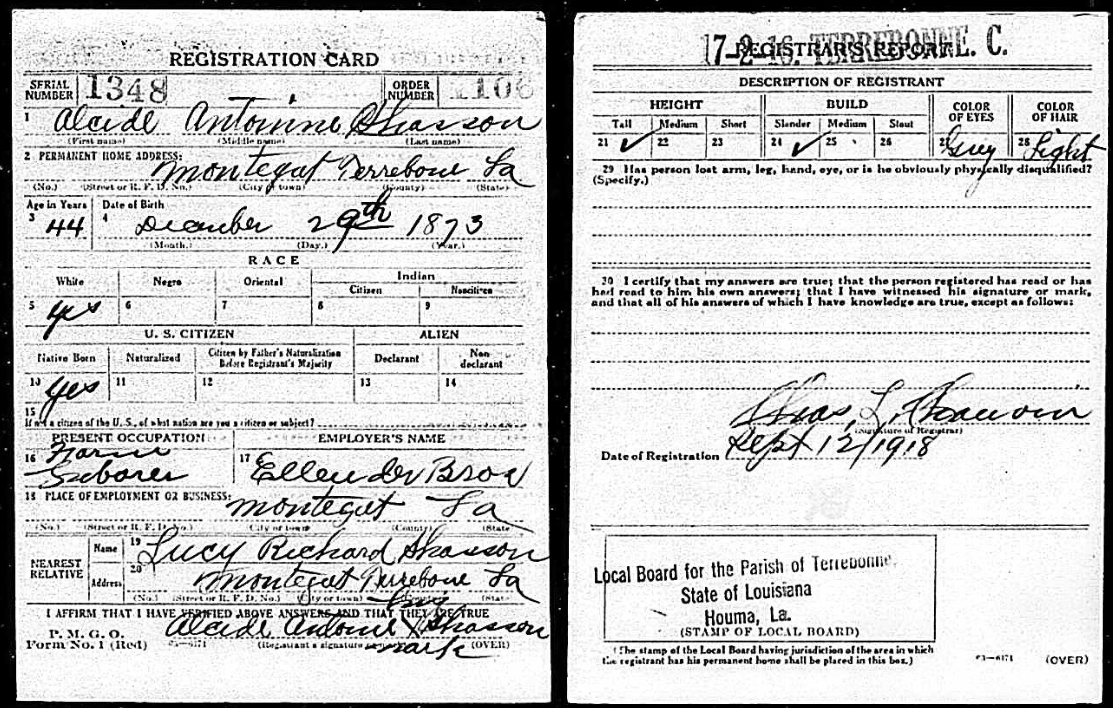 REGISTRATION CARD
SERIAL NUMBER 1348 ORDER NUMBER 1106
1 Alcide Antoinne Shasson
(First name) (Middle name) (Last name)
2 PERMANENT HOME ADDRESS:
Montegut Terrebone La
(No.) (Street or R. F. D. No.) (City or town) (County) (State)
Age in Years Date of Birth
3 44 4 December 29th 1873
(Month.) (Day.) (Year.)
RACE
White Negro Oriental Indian
Citizen Noncitizen
5 yes 6 7 8 9
U. S. CITIZEN ALIEN
Native Born Naturalized Citizen by Father's Naturalization Before Registrant's Majority Declarant Non-declarant
10 yes 11 12 13 14
15
If not a citizen of the U. S., of what nation are you a citizen or subject?
PRESENT OCCUPATION EMPLOYER'S NAME
16 Farm Laborer 17 Ellender Bros
18 PLACE OF EMPLOYMENT OR BUSINESS:
Montegut La
(No.) (Street or R. F. D. No.) (City or town) (County) (State
NEAREST RELATIVE
Name 19 Lucy Richard Shasson
Address 20 Montegut Terrebone La
(No.) (Street or R. F. D. No.) (City or town) (County) (State)
I AFFIRM THAT I HAVE VERIFIED ABOVE ANSWERS AND THAT THEY ARE TRUE
his
Alcide Antoine X Shasson
mark
P. M. G. O.
Form No. 1 (Red) 03—6171 (Registrant's signature (OVER)
17-2-16. TERREBONNE. C.
REGISTRAR'S REPORT
DESCRIPTION OF REGISTRANT
HEIGHT BUILD COLOR OF EYES COLOR OF HAIR
Tall Medium Short Slender Medium Stout
21 ✓ 22 23 24 ✓ 25 26 27 Grey 28 Light
29 Has person lost arm, leg, hand, eye, or is he obviously physically disqualified?
(Specify.)
30 I certify that my answers are true; that the person registered has read or has
had read to him his own answers; that I have witnessed his signature or mark,
and that all of his answers of which I have knowledge are true, except as follows:
Chas, L, Chauvin
(Signature of Registrar)
Date of Registration Sept 12/1918
Local Board for the Parish of Terrebonne,
State of Louisiana
Houma, La.
(STAMP OF LOCAL BOARD)
(The stamp of the Local Board having jurisdiction of the area in which
the registrant has his permanent home shall be placed in this box.)
03—6171 (OVER)